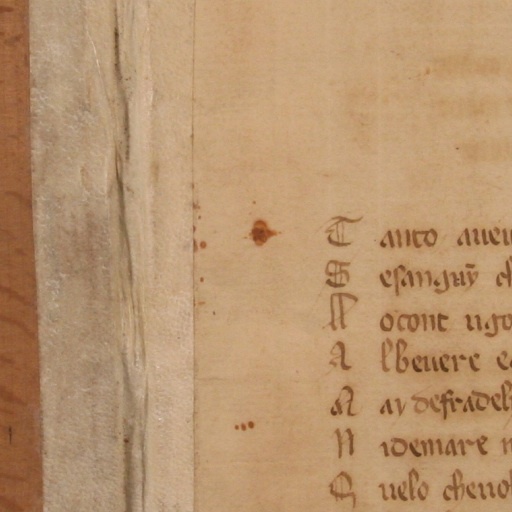 T anto aueu
S esanguỹ ch
N oconc ugo
A lbeuere e
N ay defradel
N idemare
Q uelo cheuol